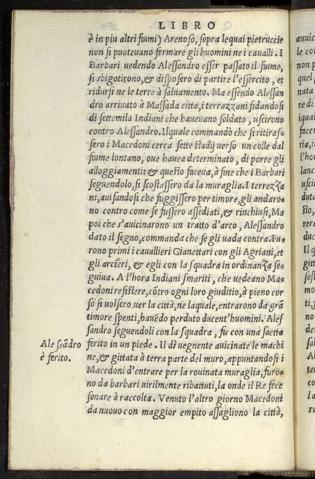 LIBRO
è in piu altri fiumi) Arenoso, sopra lequai pietruccie
non si puoteuano fermare gli huomini ne i caualli. I
Barbari uedendo Alessandro esser passato il fiume,
si sbigotirono, & disposero di partire l'essercito, et
ridursi ne le terre à saluamento. Ma essendo Alessan
dro arriuato à Massada citta, i terrazzani fidandosi
di settemila Indiani che haueuano soldato, uscirono
contro Alessandro. Ilquale commādò che si ritiras-
sero i Macedoni cerca sette stadij uerso un colle dal
fiume lontano, oue hauea determinato, di porre gli
alloggiamenti: & questo faceua, à fine che i Barbari
seguendolo, si scostassero da la muraglia. I terrezza
ni, auisandosi che fuggissero per timore, gli andaro-
no contro come se fussero assediati, & rinchiusi, Ma
poi che s'auicinarono un tratto d'arco, Alessandro
dato il segno, commanda che se gli uada contra. Fu-
rono primi i cauallieri Gianettari con gli Agriani, et
gli arcieri, & egli con la squadra in ordinanza se-
guiua. A l'hora Indiani smariti, che uedeano Ma-
cedoni resistere, cōtro ogni loro giuditio, à pieno cor
so si uolsero uer la città, ne laquale, entrarono da grā
timore spenti, hauēdo perduto ducent'huomini. Ales
sandro seguendoli con la squadra, fu con una saetta
ferito in un piede. Il dì uegnente auicinate le machi
ne, & gittata à terra parte del muro, appuntandosi i
Macedoni d'entrare per la rouinata muraglia, furo-
no da barbari uirilmente ributtati, la onde il Re fece
sonare à raccolta. Venuto l'altro giorno Macedoni
da nuouo con maggior empito assagliono la città,
Ale ssādro
è ferito.